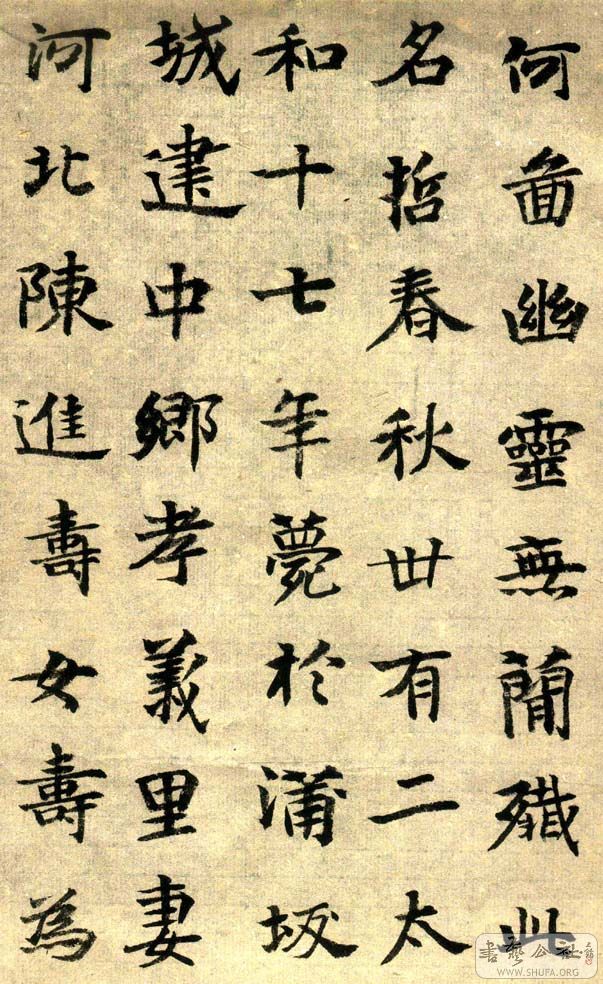 何啚幽靈無簡殱此
名哲春秋丗有二太
和十七年薨於蒲坂
城建中鄉孝義里妻
河北陳進壽女壽為
書藝公社
WWW.SHUFA.ORG